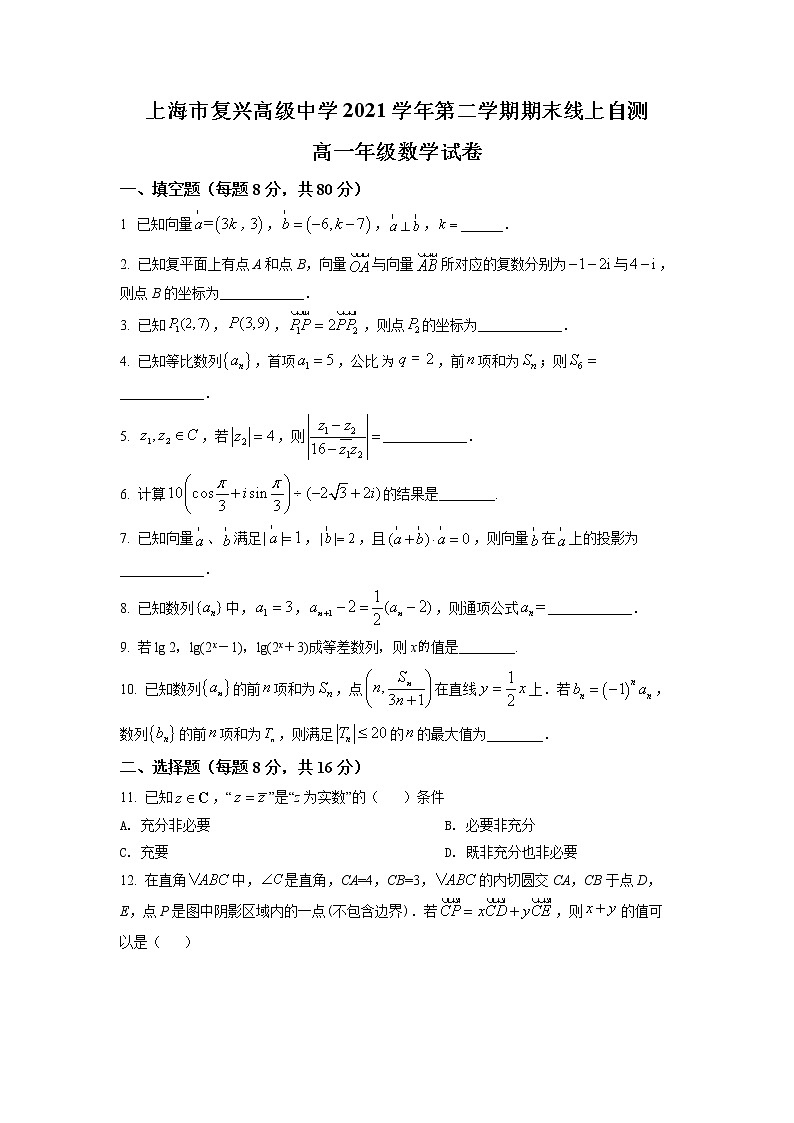 上海市复兴高级中学 2021 学年第二学期期末线上自测
高一年级数学试卷
一、填空题（每题 8 分，共 80 分）
1 已知向量 a=(3k, 3)，b=(−6, k−7)，a⊥b，k=______．
2. 已知复平面上有点 A 和点 B，向量 OA 与向量 AB 所对应的复数分别为 −1−2i 与 4−i，
则点 B 的坐标为____________．
3. 已知 P₁(2,7)，P(3,9)，P₁P = 2PP₂，则点 P₂ 的坐标为____________．
4. 已知等比数列{aₙ}，首项 a₁=5，公比为 q = 2，前 n 项和为 Sₙ；则 S₆=
____________．
5. z₁,z₂∈C，若|z₂|=4，则|(z₁−z₂)/(16−z̅₁z₂)|=____________．
6. 计算 10(cos π/3 + i sin π/3)÷(−2√3+2i) 的结果是________.
7. 已知向量 a、b 满足|a|=1，|b|=2，且(a+b)·a=0，则向量 b 在 a 上的投影为
____________．
8. 已知数列{aₙ}中，a₁=3，aₙ₊₁−2=1/2(aₙ−2)，则通项公式 aₙ=____________．
9. 若 lg 2，lg(2ˣ－1)，lg(2ˣ＋3)成等差数列，则 x的值是________.
10. 已知数列{aₙ}的前 n 项和为 Sₙ，点(n, Sₙ/(3n+1))在直线 y=1/2 x 上．若 bₙ=(−1)ⁿaₙ，
数列{bₙ}的前 n 项和为 Tₙ，则满足|Tₙ|≤20 的 n 的最大值为________．
二、选择题（每题 8 分，共 16 分）
11. 已知 z∈C，“z=z̅”是“z 为实数”的（ ）条件
A. 充分非必要 B. 必要非充分
C. 充要 D. 既非充分也非必要
12. 在直角 VABC 中，∠C 是直角，CA=4，CB=3，VABC 的内切圆交 CA，CB 于点 D，
E，点 P 是图中阴影区域内的一点(不包含边界)．若 CP= xCD+yCE，则 x+y 的值可
以是（ ）